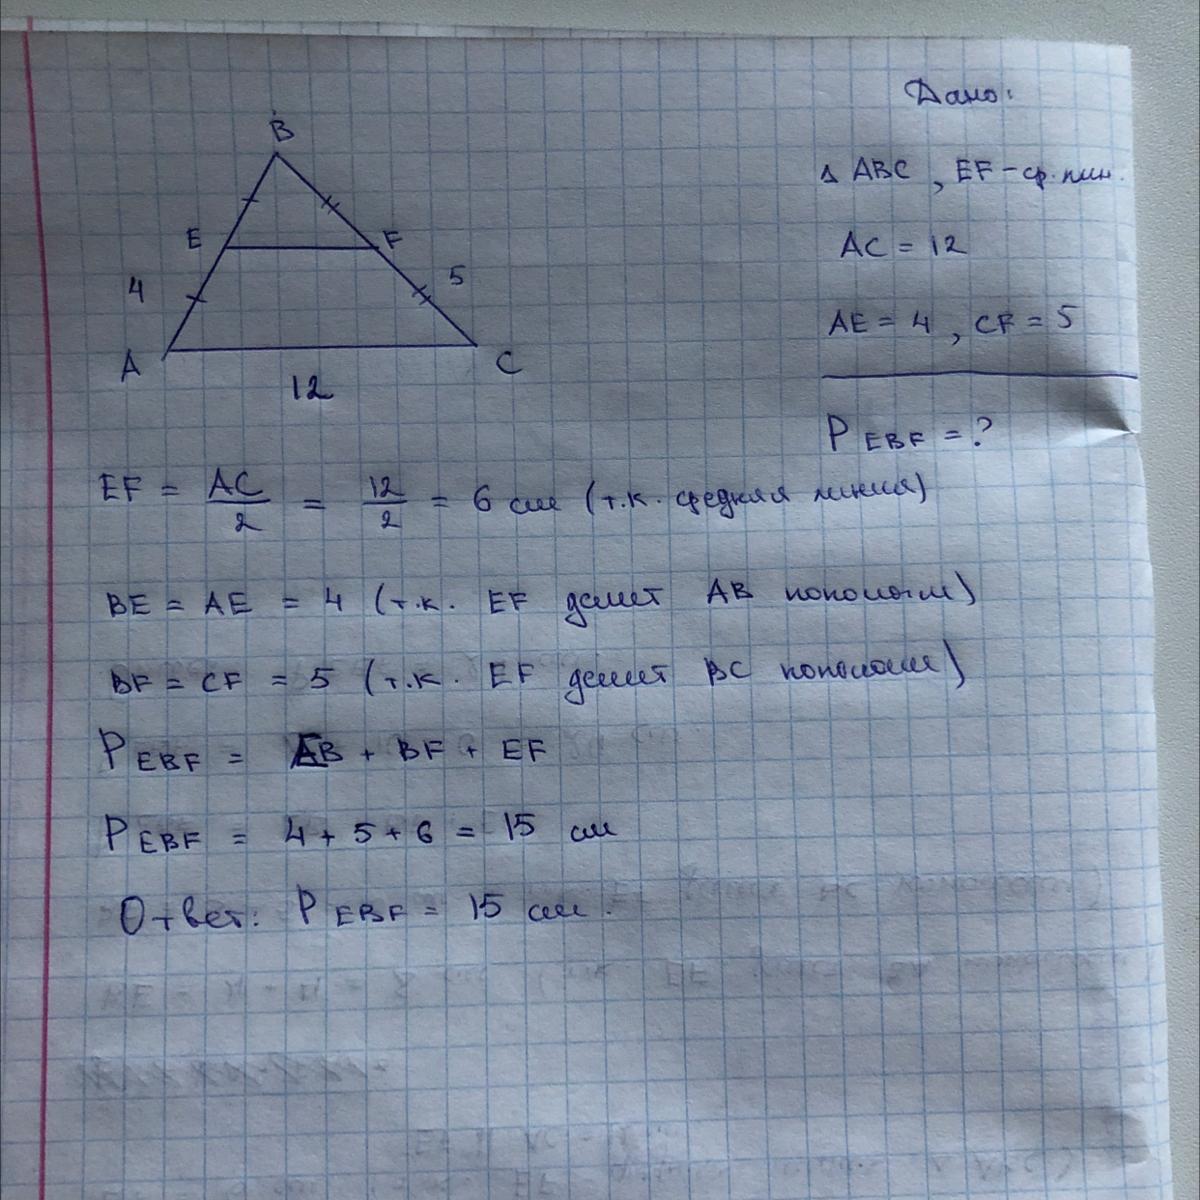 Дано:
B
Δ ABC, EF - ср. лин.
E F
AC = 12
4 5
AE = 4, CF = 5
A C
12
P EBF = ?
EF = AC/2 = 12/2 = 6 см (т.к. средняя линия)
BE = AE = 4 (т.к. EF делит AB пополам)
BF = CF = 5 (т.к. EF делит BC пополам)
P EBF = EB + BF + EF
P EBF = 4 + 5 + 6 = 15 см
Ответ: P EBF = 15 см.